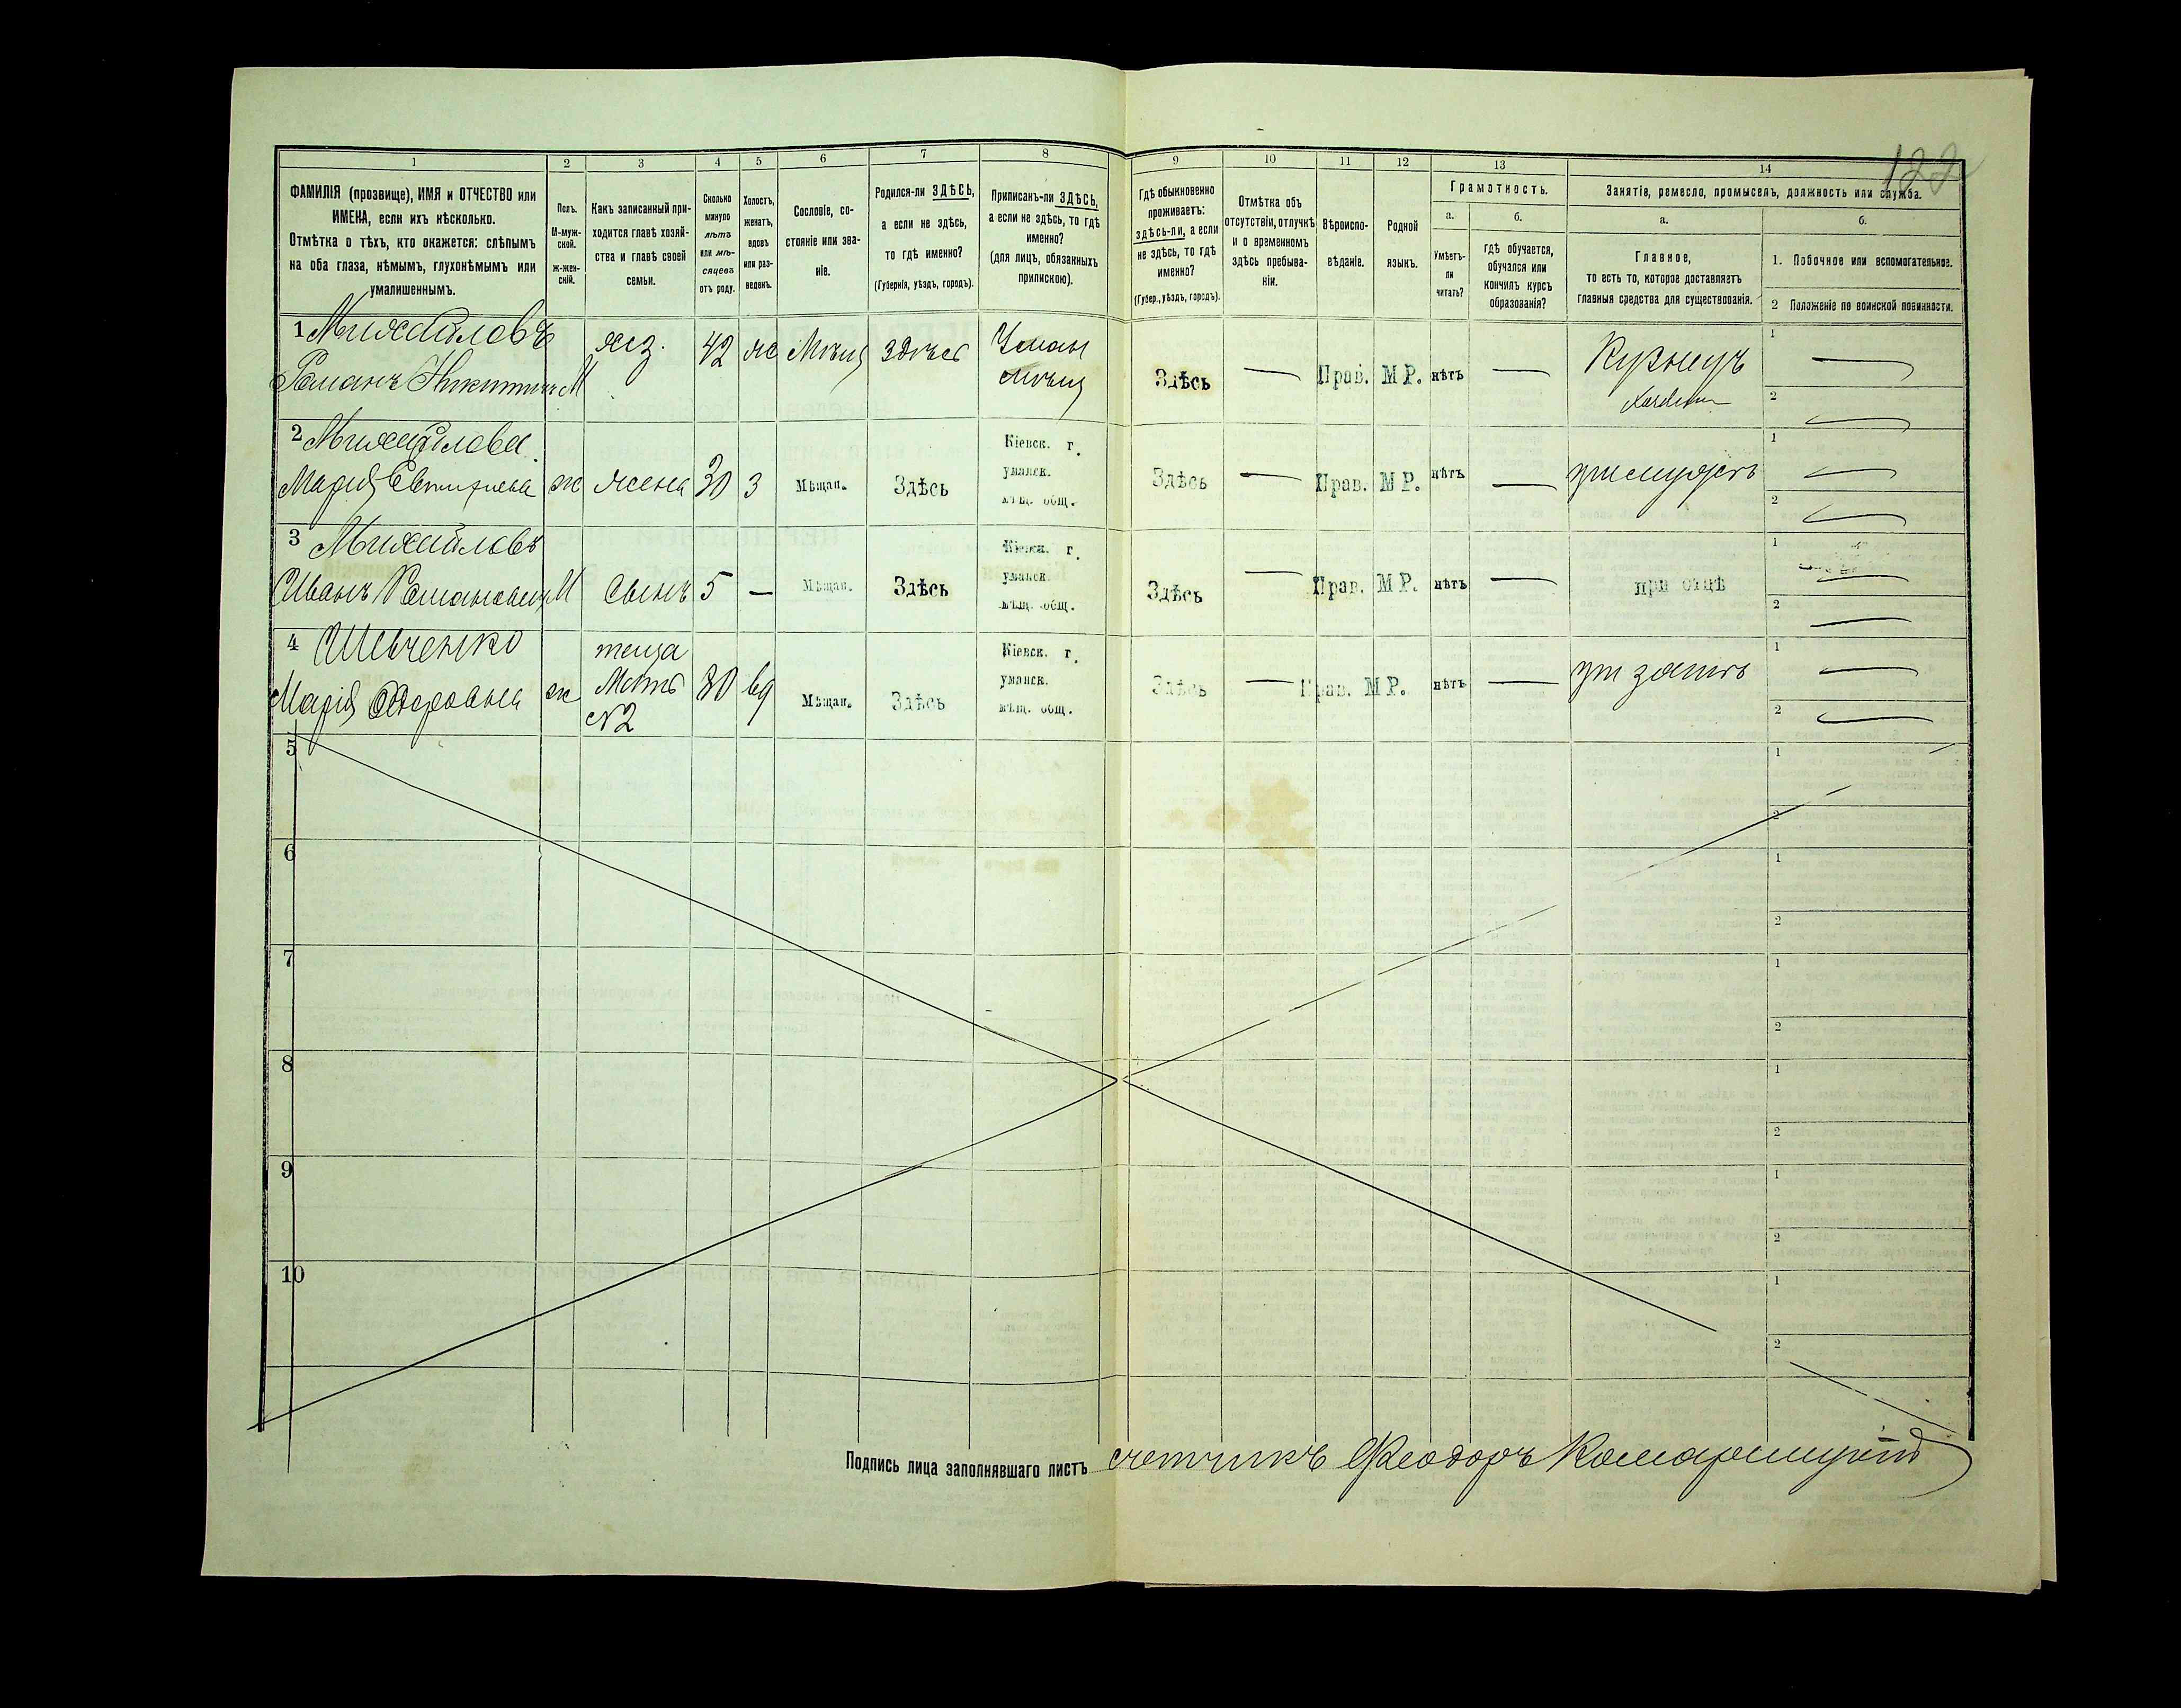 122
1 2 3 4 5 6 7 8 9 10 11 12 13 14
ФАМИЛІЯ (прозвище), ИМЯ и ОТЧЕСТВО или
ИМЕНА, если ихъ нѣсколько.
Отмѣтка о тѣхъ, кто окажется: слѣпымъ
на оба глаза, нѣмымъ, глухонѣмымъ или
умалишеннымъ.
Полъ.
М-муж-
ской.
ж-жен-
скій.
Какъ записанный при-
ходится главѣ хозяй-
ства и главѣ своей
семьи.
Сколько
минуло
лѣтъ
или мѣ-
сяцевъ
отъ роду.
Холостъ,
женатъ,
вдовъ
или раз-
веденъ.
Сословіе, со-
стояніе или зва-
ніе.
Родился-ли ЗДѢСЬ,
а если не здѣсь,
то гдѣ именно?
(Губернія, уѣздъ, городъ).
Приписанъ-ли ЗДѢСЬ,
а если не здѣсь, то гдѣ
именно?
(для лицъ, обязанныхъ
припискою).
Гдѣ обыкновенно
проживаетъ:
здѣсь-ли, а если
не здѣсь, то гдѣ
именно?
(Губер., уѣздъ, городъ).
Отмѣтка объ
отсутствіи, отлучкѣ
и о временномъ
здѣсь пребыва-
ніи.
Вѣроиспо-
вѣданіе.
Родной
языкъ.
Грамотность.
а.
Умѣетъ-
ли
читать?
б.
гдѣ обучается,
обучался или
кончилъ курсъ
образованія?
Занятія, ремесло, промыселъ, должность или служба.
а.
Главное,
то есть то, которое доставляетъ
главныя средства для существованія.
б.
1. Побочное или вспомогательное.
2 Положеніе по воинской повинности.
1 Михайловъ
Романъ Никитинъ М хоз. 42 же Мѣщ здѣсь Умань мѣщ Здѣсь — Прав. МР. нѣтъ — Кузнецъ
1 —
2 —
2 Михайлова
Марія Евтифиева ж жена 30 з Мѣщан. Здѣсь
Кіевск. г.
уманск.
мѣщ. общ.
Здѣсь — Прав. МР. нѣтъ — при мужѣ
1 —
2 —
3 Михайловъ
Иванъ Романовичъ М сынъ 5 — Мѣщан. Здѣсь
Кіевск. г.
уманск.
мѣщ. общ.
Здѣсь — Прав. МР. нѣтъ — при отцѣ
1 —
2 —
4 Шевченко
Марія Федоровна ж
теща
Мать
№2
80 вд Мѣщан. Здѣсь
Кіевск. г.
уманск.
мѣщ. общ.
Здѣсь — Прав. МР. нѣтъ — при зятѣ
1 —
2 —
5 1
2
6 1
2
7 1
2
8 1
2
9 1
2
10 1
2
Подпись лица заполнявшаго листъ счетчикъ Феодоръ Комарницкій